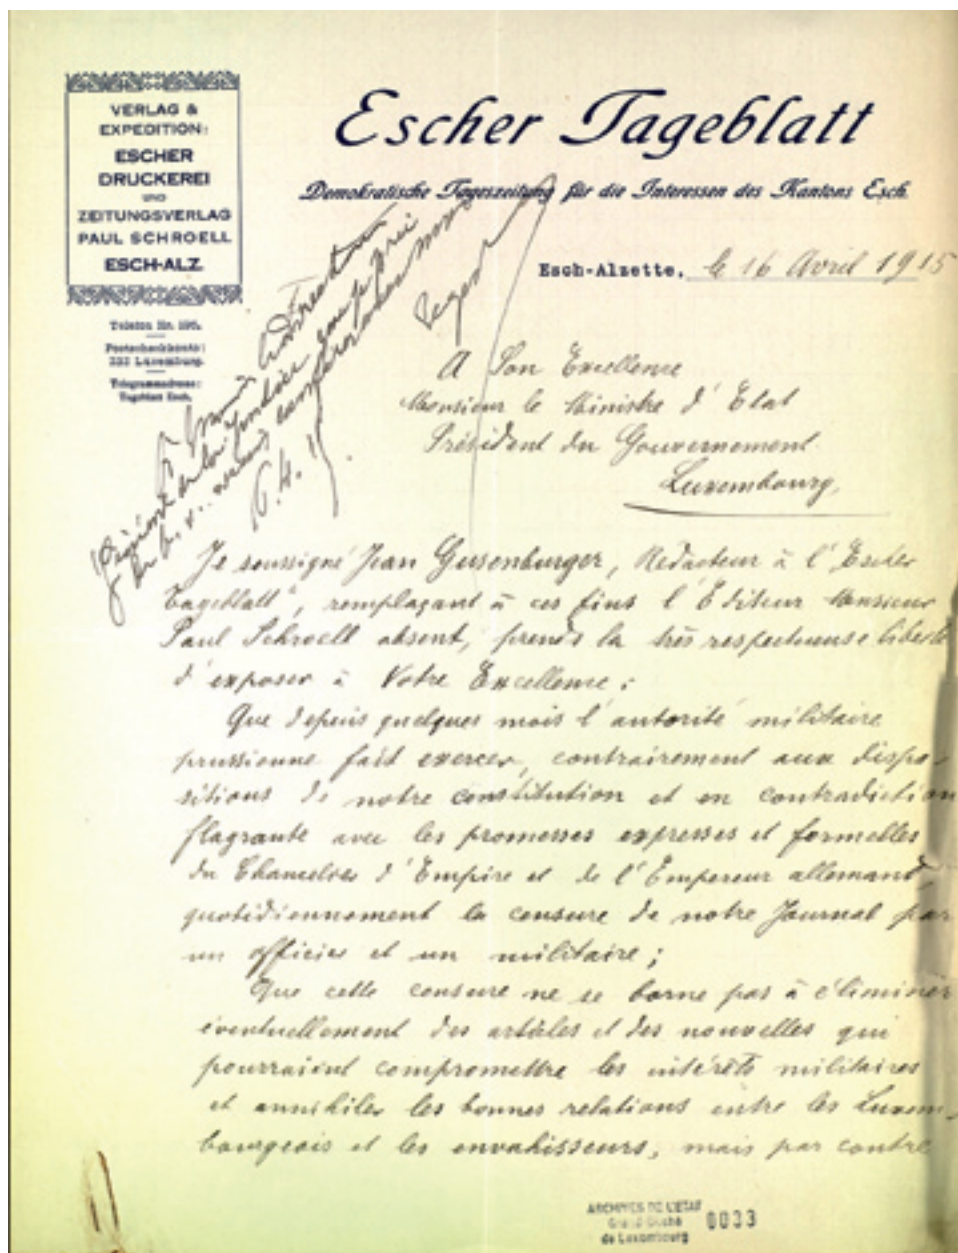 VERLAG &
EXPEDITION:
ESCHER
DRUCKEREI
UND
ZEITUNGSVERLAG
PAUL SCHROELL
ESCH-ALZ.
Telefon Nr.
Postscheckkonto:
Luxemburg.
Telegrammadresse:
Tageblatt Esch.
Escher Tageblatt
Demokratische Tageszeitung für die Interessen des Kantons Esch.
Esch-Alzette, le 16 Avril 1915
A Son Excellence
Monsieur le Ministre d'Etat
Président du Gouvernement
Luxembourg,
Je soussigné Jean Gusenburger, Rédacteur à l'"Escher
Tageblatt", remplaçant à ces fins l'Editeur Monsieur
Paul Schroell absent, prends la très respectueuse liberté
d'exposer à Votre Excellence:
Que depuis quelques mois l'autorité militaire
prussienne fait exercer, contrairement aux dispo-
sitions de notre constitution et en contradiction
flagrante avec les promesses expresses et formelles
du Chancelier d'Empire et de l'Empereur allemand,
quotidiennement la censure de notre Journal par
un officier et un militaire;
Que cette censure ne se borne pas à éliminer
éventuellement des articles et des nouvelles qui
pourraient compromettre les intérêts militaires
et annihiler les bonnes relations entre les Luxem-
bourgeois et les envahisseurs, mais par contre
ARCHIVES DE L'ETAT
Grand-Duché
de Luxembourg
0033